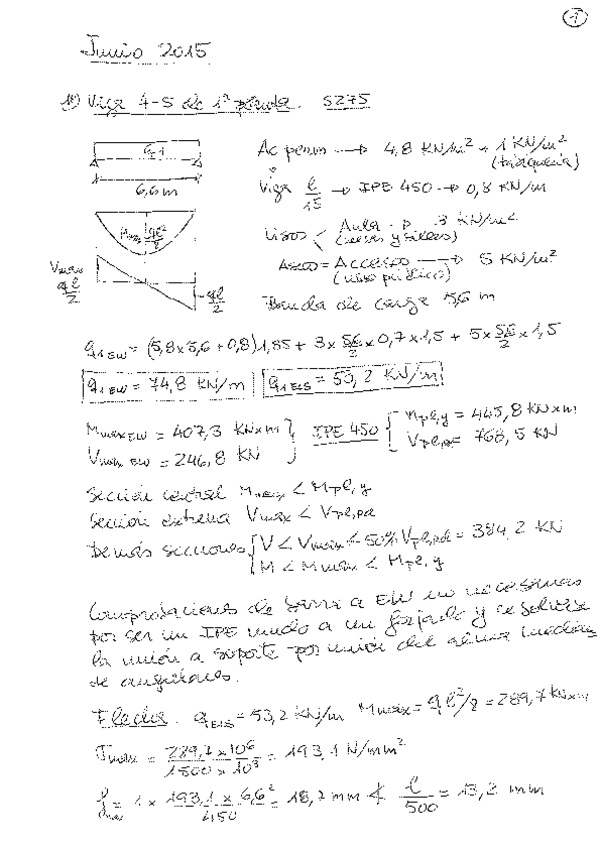 1
Junio 2015
1º) Viga 4-5 de 1ª planta. S275
q1
6,6 m
Ac perm → 4,8 KN/m² + 1 KN/m²
(tabiquería)
Viga l/15 → IPE 450 → 0,8 KN/m
Usos < Aula → 3 KN/m²
(mesas y sillas)
Acceso → 5 KN/m²
(uso público)
Banda de carga 5,6 m
Mmax ql²/8
Vmax
ql/2
-ql/2
q1 ELU = (5,8x5,6 + 0,8)1,35 + 3x5,6/2 x0,7x1,5 + 5x5,6/2 x1,5
q1 ELU = 74,8 KN/m q1 ELS = 53,2 KN/m
Mmax ELU = 407,3 KNxm } IPE 450 { Mpl,y = 445,8 KNxm
Vmax ELU = 246,8 KN Vpl,Rd = 768,5 KN
Sección central Mmax < Mpl,y
Sección extrema Vmax < Vpl,Rd
Demás secciones { V < Vmax < 50% Vpl,Rd = 384,2 KN
M < Mmax < Mpl,y
Comprobaciones de barra a ELU no necesarias
por ser un IPE unido a un forjado y
la unión a soporte por unión del alma mediante
de angulares.
Flecha. qELS = 53,2 KN/m Mmáx = ql²/8 = 289,7 KNxm
σmax = 289,7 x 10⁶ / 1500 x 10³ = 193,1 N/mm²
fmax = 1 x 193,1 x 6,6² / 450 = 18,7 mm ≮ l/500 = 13,2 mm